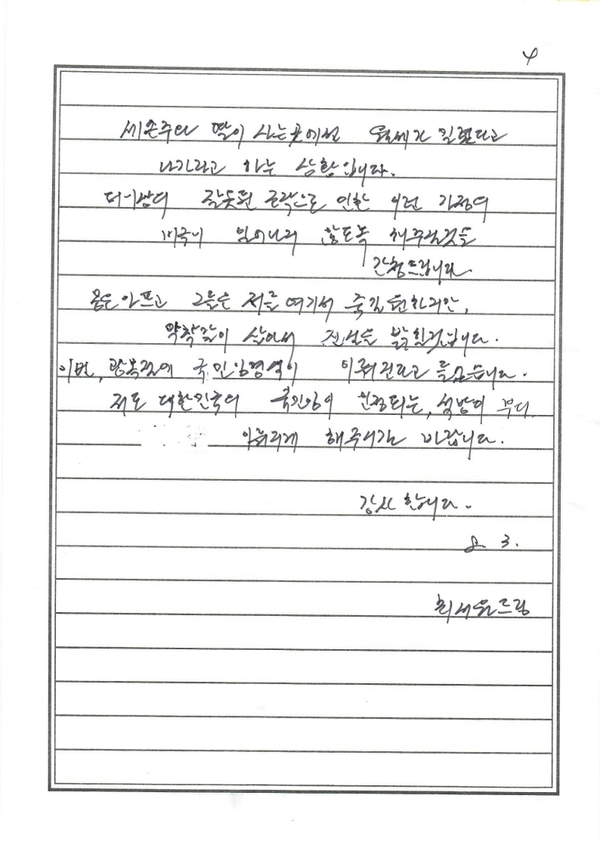 4
세 손주와 딸이 사는 곳에선 월세가 밀렸다고
나가라고 하는 상황입니다.
더이상의 잘못된 조작으로 인한 이런 가정의
비극이 일어나지 않도록 해주실것을
간청드립니다.
몸은 아프고 그들은 저를 여기서 죽길 원하지만,
악착같이 살아서 진실을 밝힐것입니다.
이번, 광복절에 국민임명식이 이뤄진다고 들었습니다.
저도 대한민국의 국민임이 인정되는, 석방이 부디
이뤄지게 해주시길 바랍니다.
감사합니다.
8. 3.
최서원드림